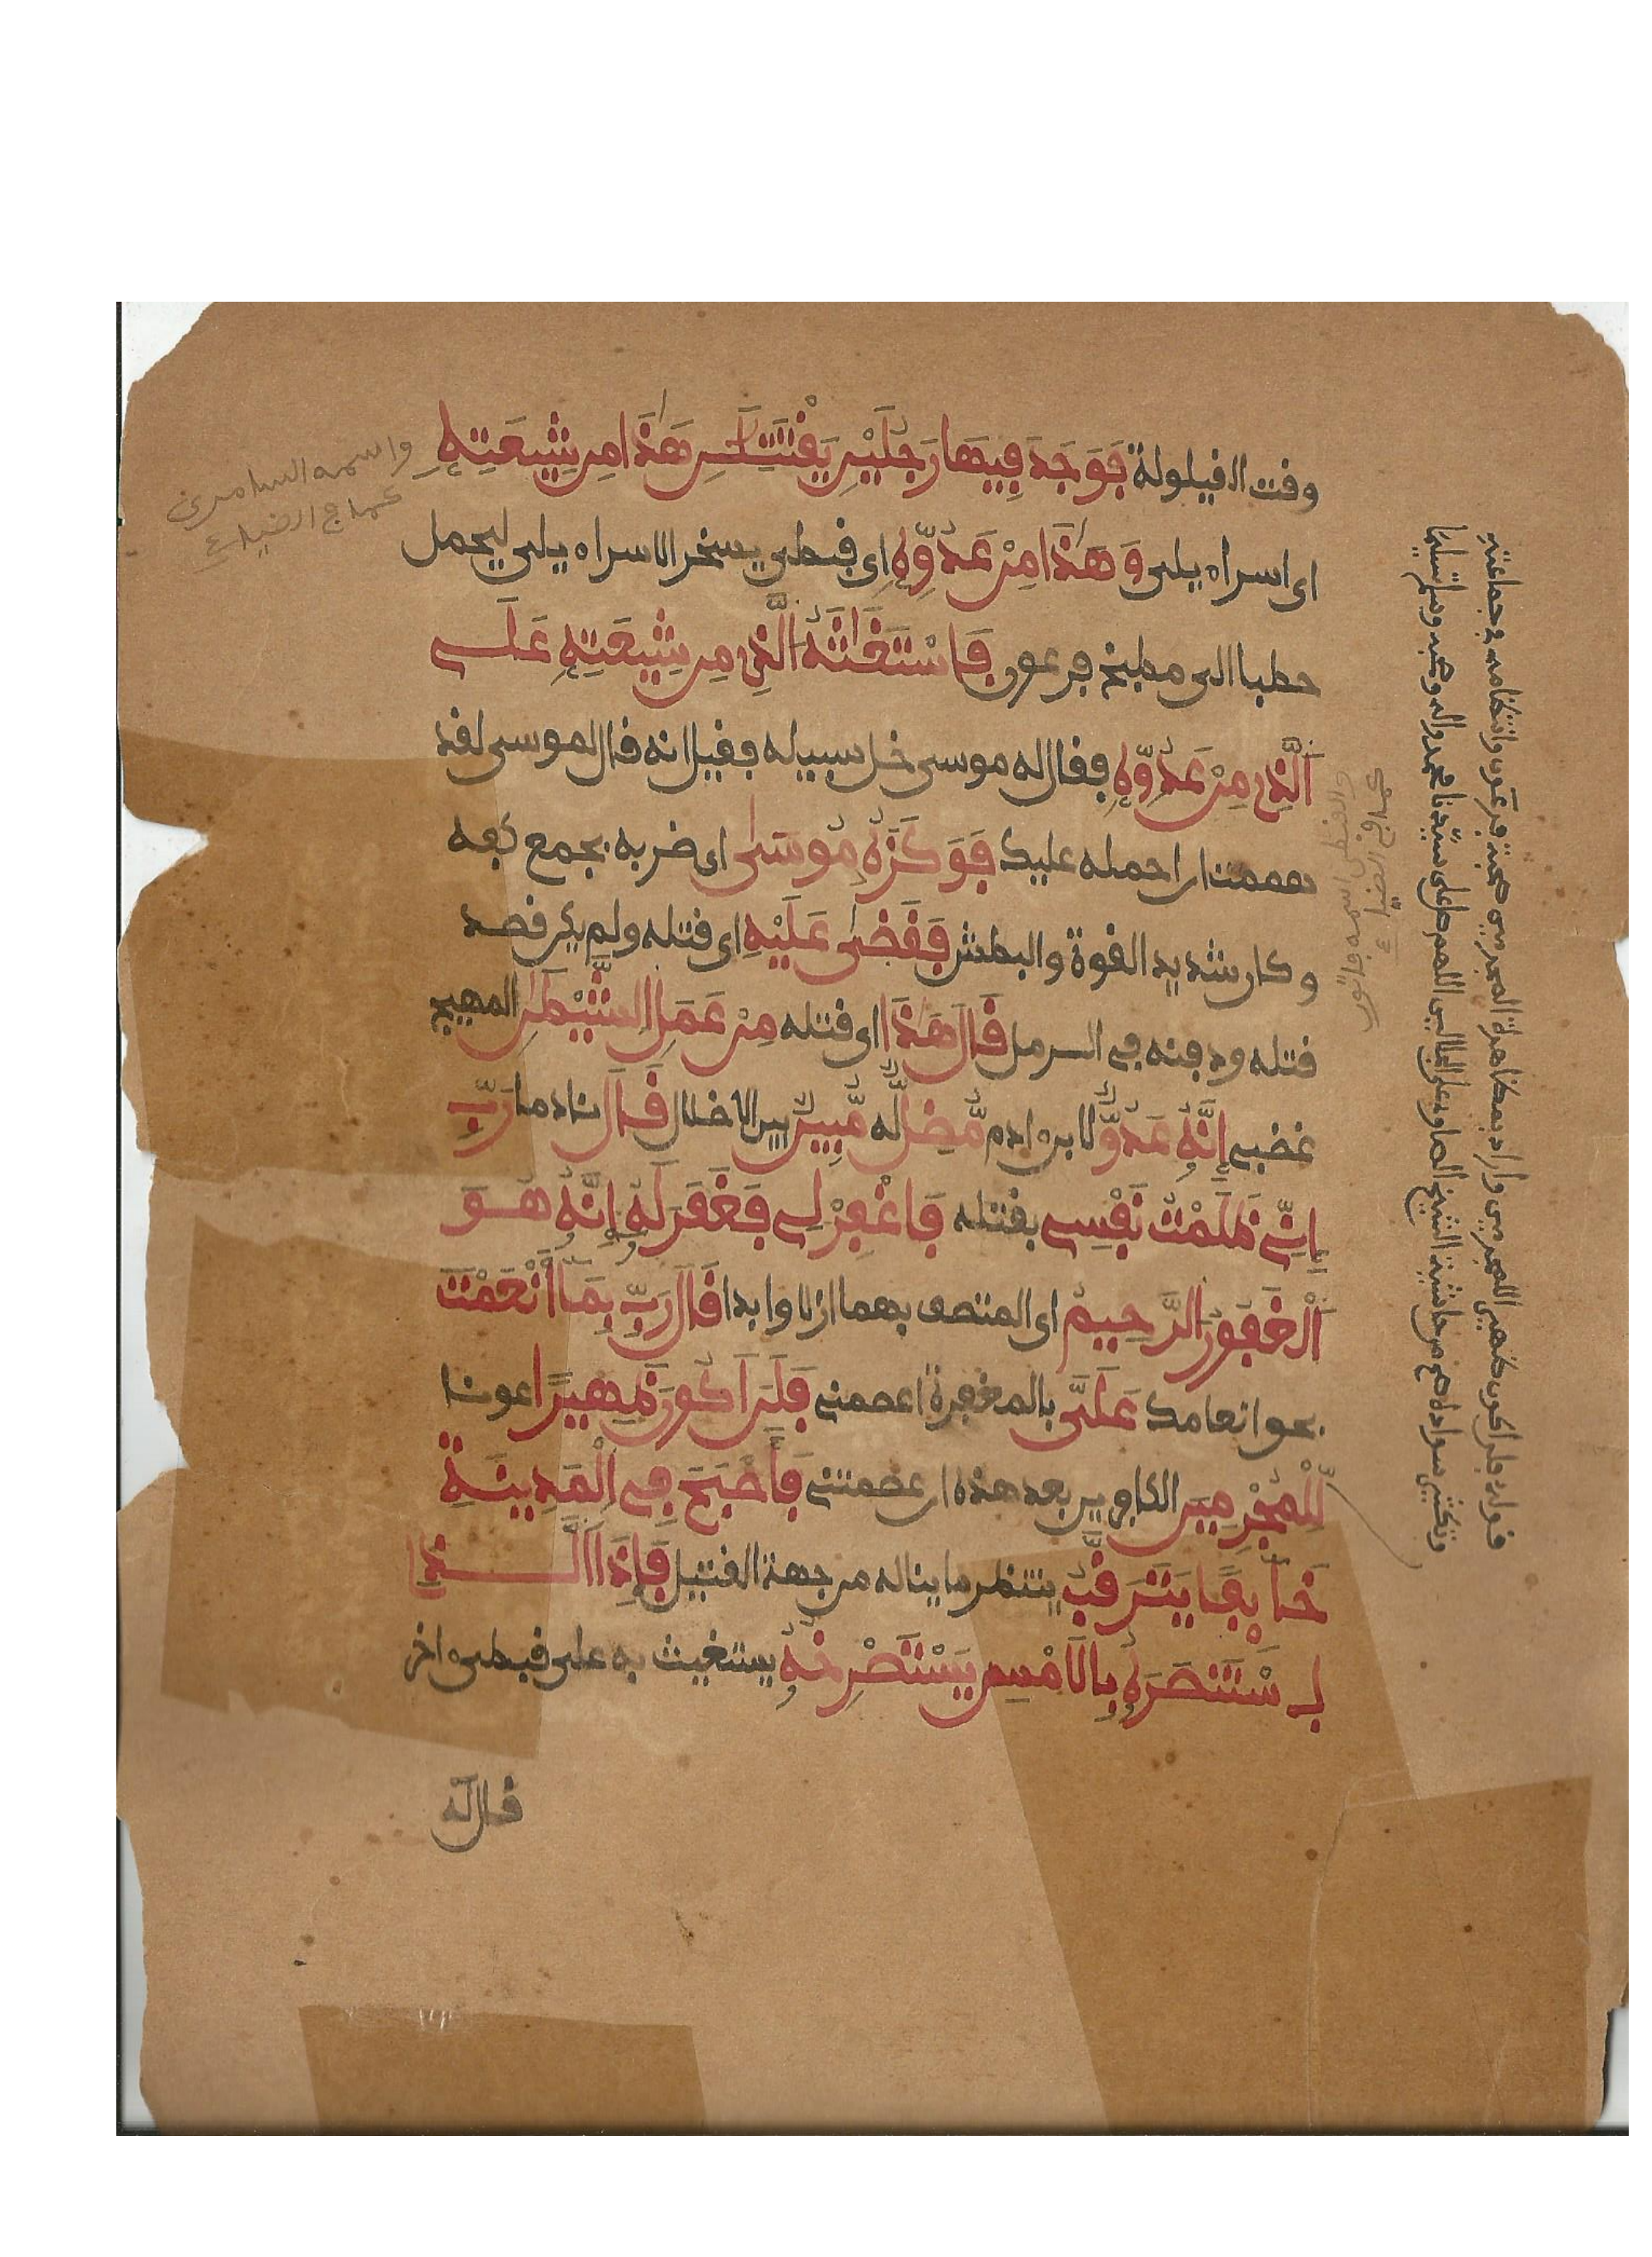 وقت القيلولة فَوَجَدَ فِيهَا رَجُلَيْنِ يَقْتَتِلَٰنِ هَٰذَا مِن شِيعَتِهِ
اى اسراءيلى وَهَٰذَا مِنْ عَدُوِّهِ اى قبطى يسخر الاسراءيلى ليحمل
حطبا الى مطبخ فرعون فَاسْتَغَٰثَهُ الَّذِى مِن شِيعَتِهِ عَلَى
اَلَّذِى مِنْ عَدُوِّهِ فقال له موسى خل سبيله فقيل انه قال لموسى لقد
هممت ان احمله عليك فَوَكَزَهُ مُوسَىٰ اى ضربه بجمع كفه
وكان شديد القوة والبطش فَقَضَىٰ عَلَيْهِ اى قتله ولم يكن قصد
قتله ودفنه في الرمل قَالَ هَٰذَا اى قتله مِنْ عَمَلِ الشَّيْطَٰنِ المهيج
غضبي إِنَّهُ عَدُوٌّ لابن ادم مُّضِلٌّ له مُّبِينٌ بين الاضلال قَالَ نادما رَبِّ
إِنِّي ظَلَمْتُ نَفْسِي بقتله فَاغْفِرْ لِي فَغَفَرَ لَهُ إِنَّهُ هُوَ
اَلْغَفُورُ الرَّحِيمُ اى المتصف بهما ازلا وابدا قَالَ رَبِّ بِمَا أَنْعَمْتَ
بحق انعامك عَلَىَّ بالمغفرة اعصمني فَلَنَ اَكُونَ ظَهِيرًا عونا
لِّلْمُجْرِمِينَ الكافرين بعد هذه ان عصمتني فَأَصْبَحَ فِي الْمَدِينَةِ
خَآئِفًا يَتَرَقَّبُ ينتظر ما يناله من جهة القتيل فَإِذَا اَلَّذِى
اِسْتَنصَرَهُ بِالَامْسِ يَسْتَصْرِخُهُ يستغيث به على قبطى اخر
قال له
واسمه السامرى
والقبطى اسمه فاتون
قوله فلن اكون ظهيرا للمجرمين واراد بمظاهرة المجرمين صحبة فرعون وانتظامه في جماعته
وتكثير سواده من حاشية الشيخ الصاوى على الجلالين اللهم صل على سيدنا محمد واله وصحبه وسلم تسليما